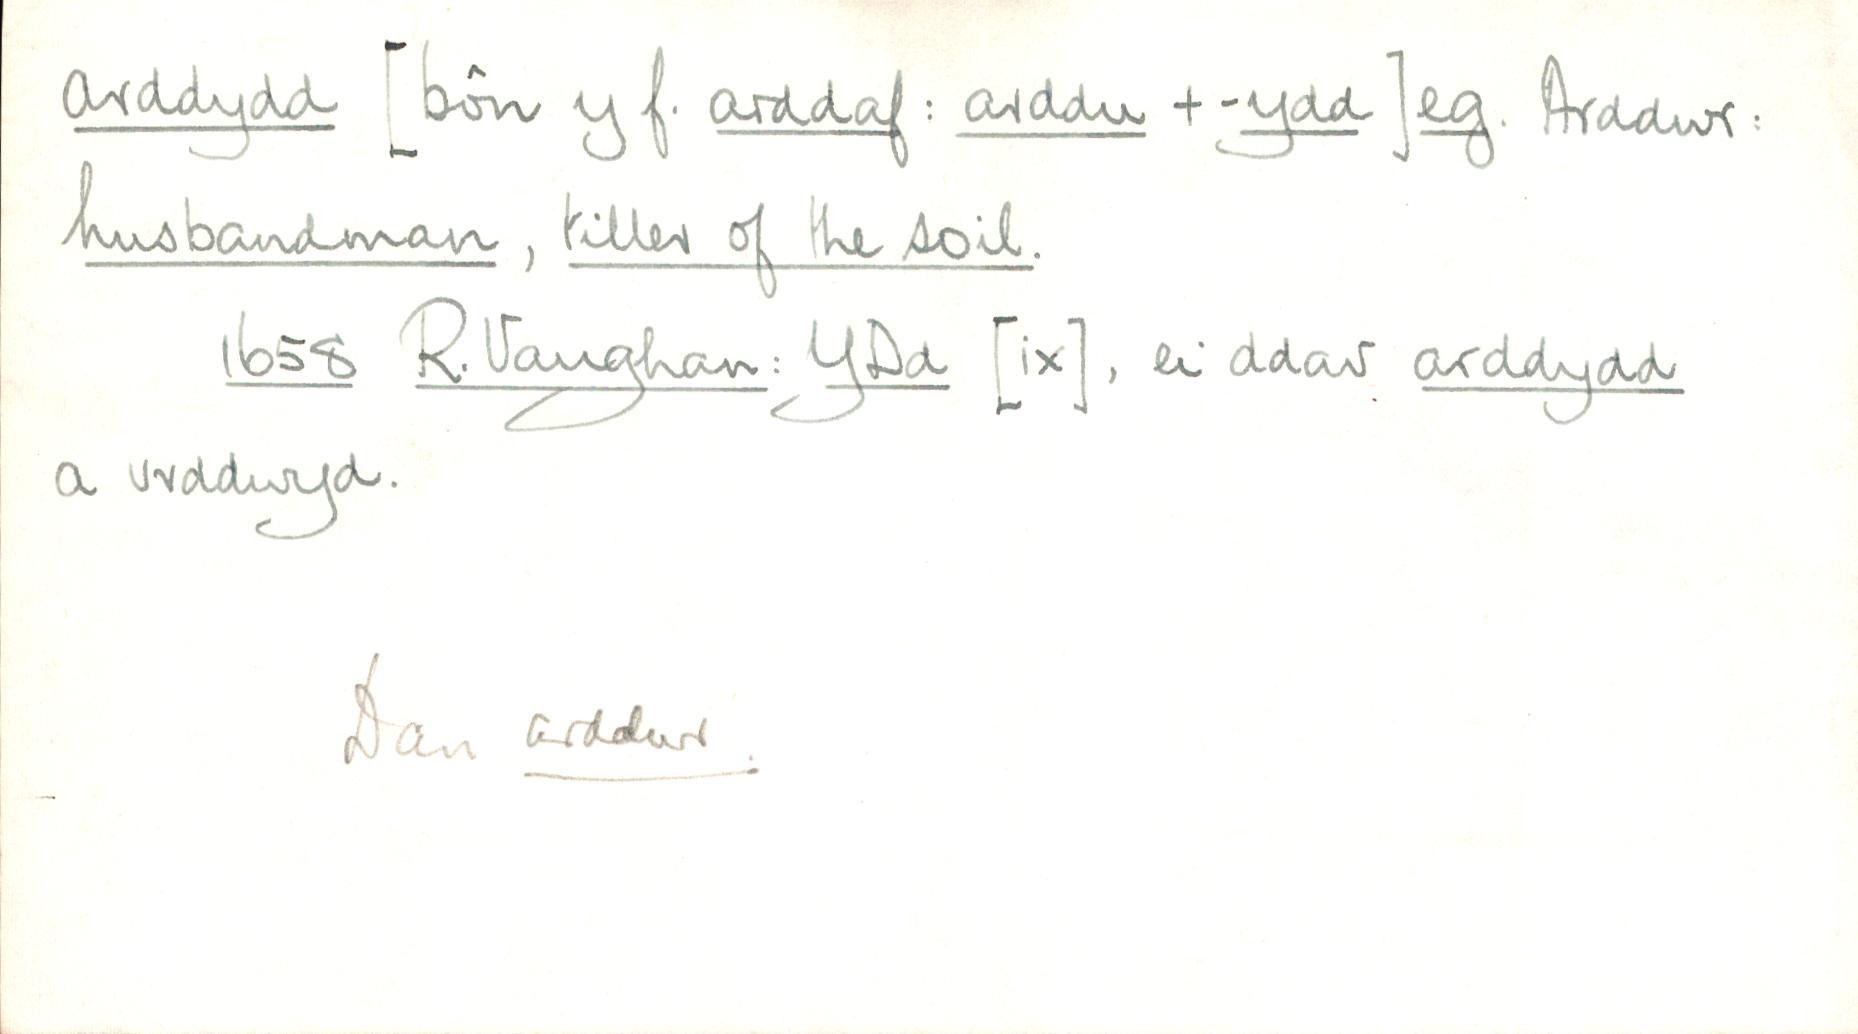 arddydd [bôn y f. arddaf: arddu + -ydd] eg. Arddwr:
husbandman, tiller of the soil.
1658 R. Vaughan: YDd [ix], ei ddav arddydd
a vrddwyd.
Dan arddwr.